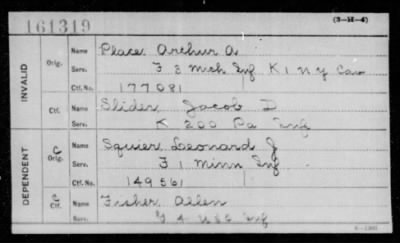 161319
(3-H-4)
INVALID
Orig.
Name Place, Arthur A.
Serv. F 8 Mich Inf K 1 N Y Cav
Ctf. No. 177081
Ctf.
Name Slider, Jacob D
Serv. K 200 Pa Inf
DEPENDENT
C
Orig.
Name Squier, Leonard J
Serv. F 1 Minn Inf
Ctf. No. 149561
C
Ctf.
Name Fisher, Allen
Serv. 4 USC Inf